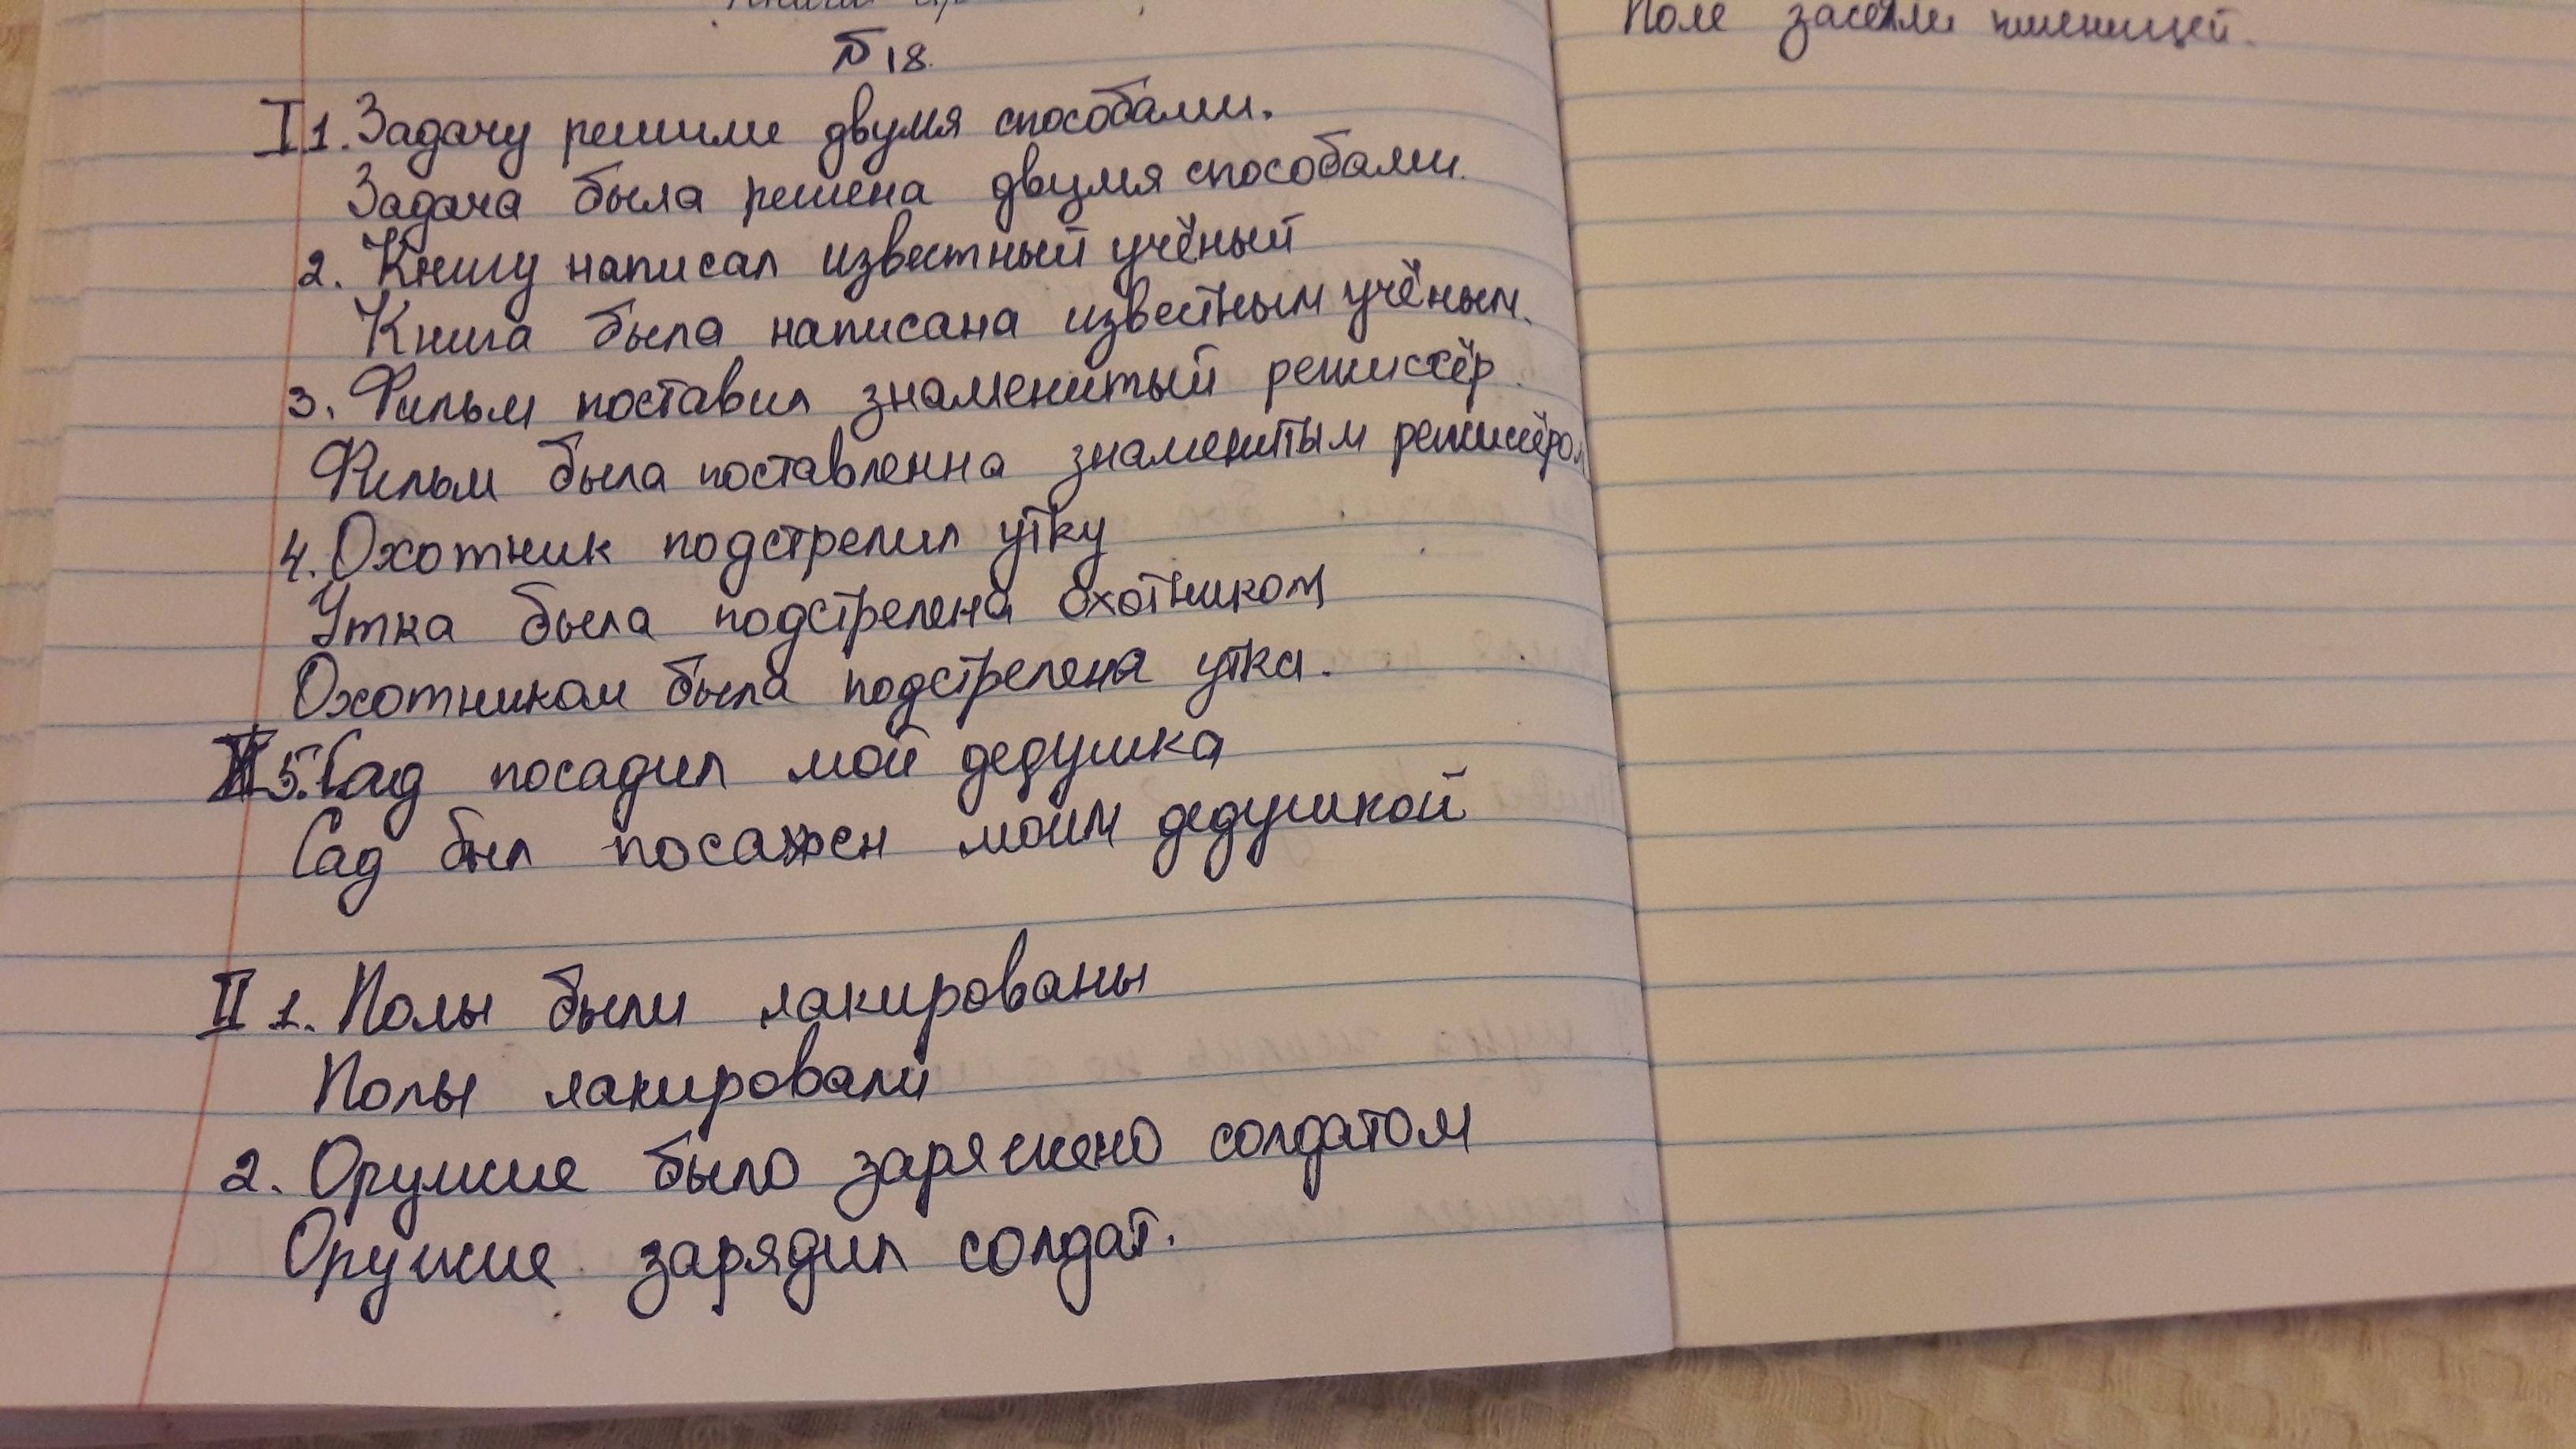 №18.
I 1. Задачу решили двумя способами.
Задача была решена двумя способами.
2. Книгу написал известный учёный
Книга была написана известным учёным.
3. Фильм поставил знаменитый режиссёр.
Фильм была поставленна знаменитым режиссёром
4. Охотник подстрелил утку
Утка была подстрелена охотником
Охотником была подстрелена утка.
5. Сад посадил мой дедушка
Сад был посажен моим дедушкой
II 1. Полы были лакированы
Полы лакировали
2. Оружие было заряжено солдатом
Оружие зарядил солдат.
Поле засеяли пшеницей.